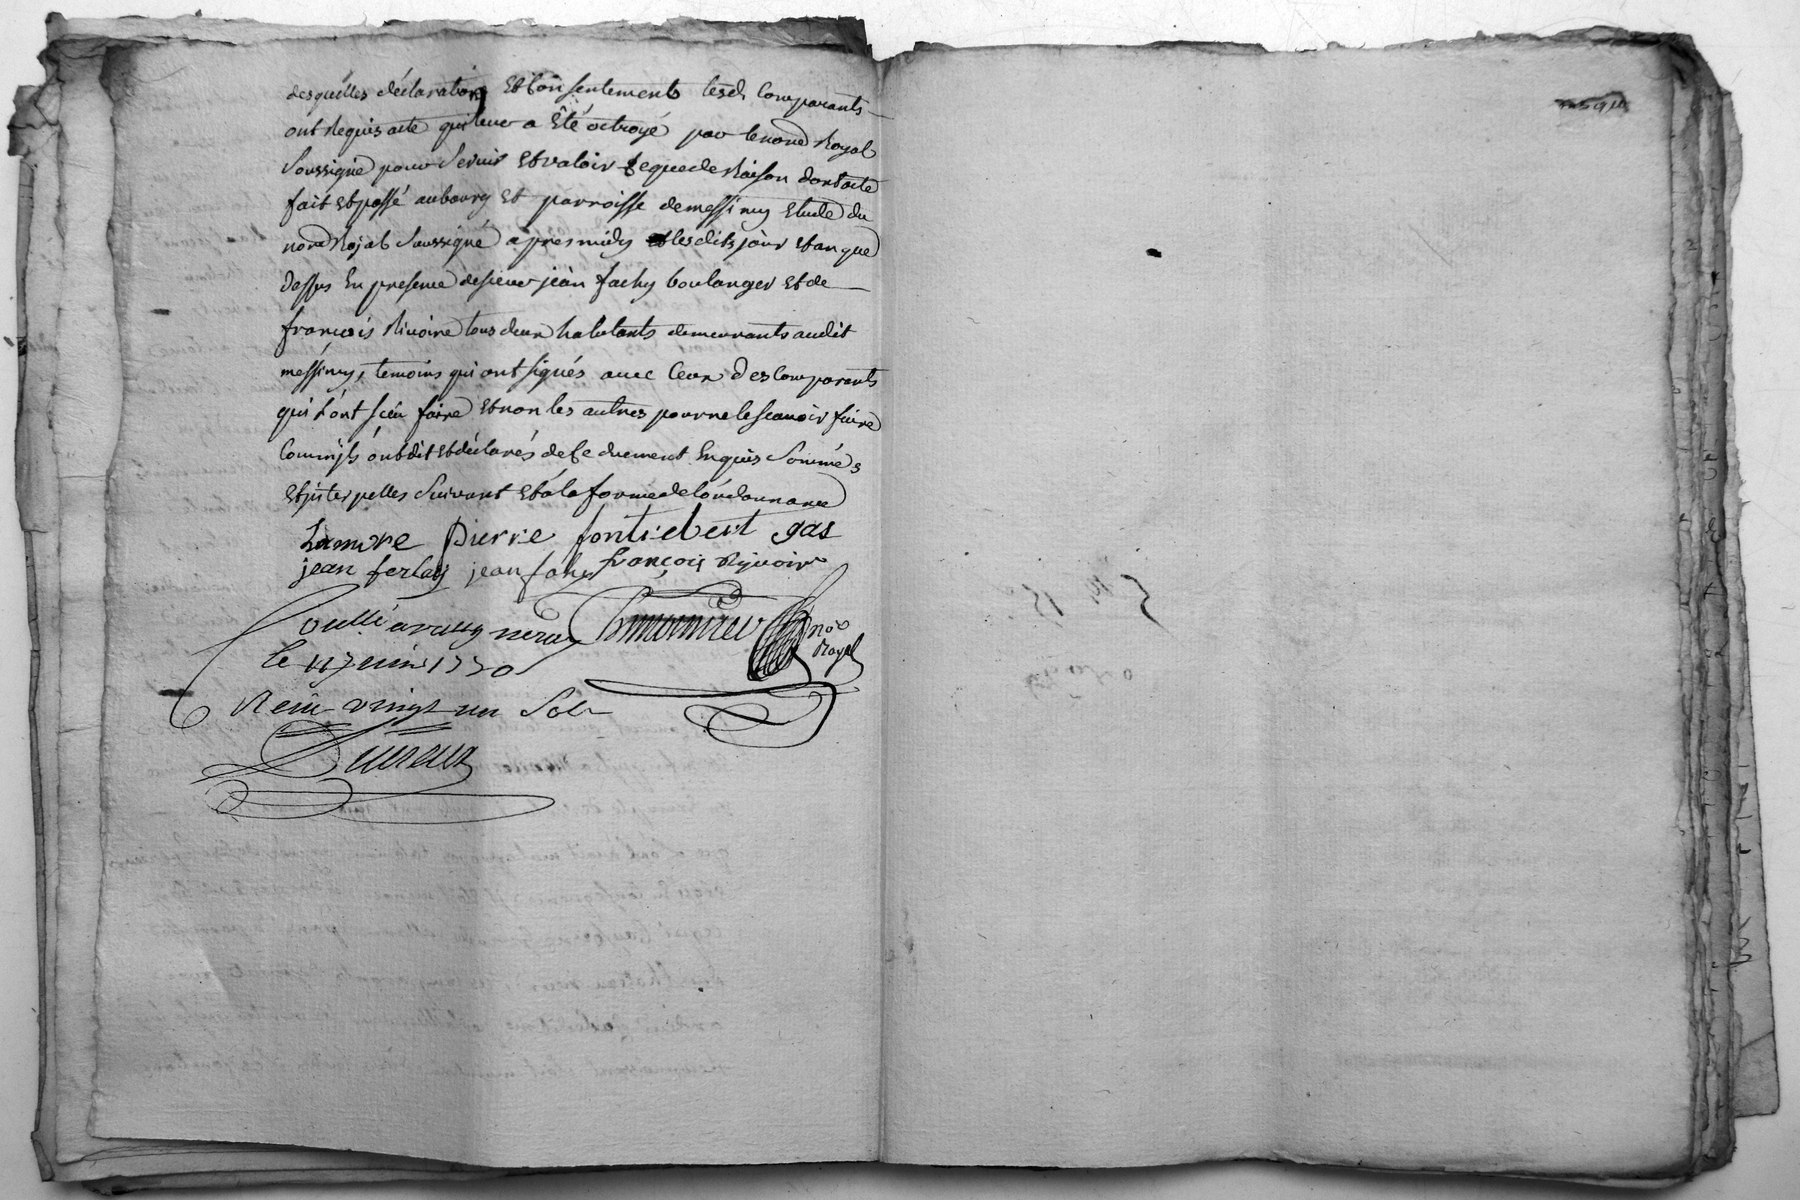 desquelles déclarations Et Consentements lesd. Comparants
ônt Requis acte qui leur a Eté octroyé par le not.re Royal
Soussigné pour Servir Et valoir Ce que de Raison dont acte
fait Et passé au bourg Et parroisse de messimy Etude du
not.re Royal Soussigné apres midy lesdits jour Et an que
Dessus En presence de sieur jean fachy boulanger Et de
francois Rivoire tous deux habitants demeurants audit
messimy, temoins qui ont signés avec Ceux des Comparants
qui l'ont sceu faire Et non les autres pour ne le scavoir faire
Comm'ils ônt dit Et déclarés de Ce duement Enquis Sommés
Et jnterpellés Suivant Et à la forme de l'ordonnance
Pierre fontrebert gas
jean ferlay jean fachy françois Rivoire
no.re Royal
Conllé a vaugneray
le juin 1770
Reçu vingt un Sols